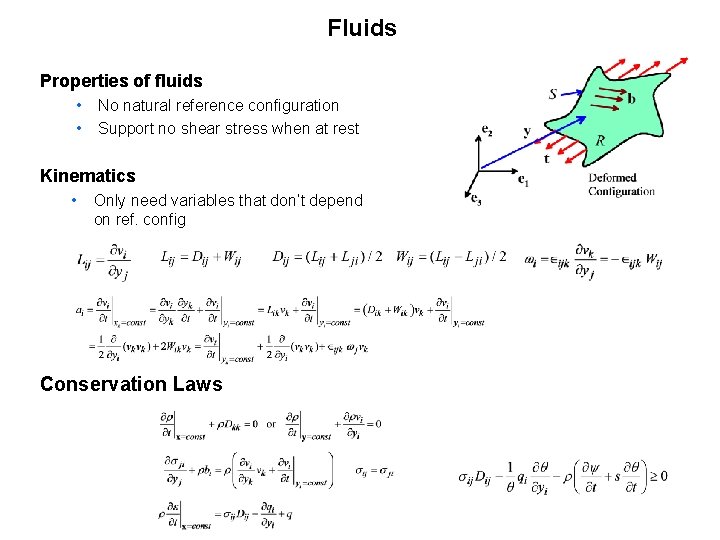 Fluids
Properties of fluids
• No natural reference configuration
• Support no shear stress when at rest
Kinematics
• Only need variables that don't depend
on ref. config
S b
e₂ y R
t
e₁
e₃
Deformed
Configuration
L_ij = ∂v_i/∂y_j L_ij = D_ij + W_ij D_ij = (L_ij + L_ji)/2 W_ij = (L_ij − L_ji)/2 ω_i = ∈_ijk ∂v_k/∂y_j = −∈_ijk W_ij
a_i = ∂v_i/∂t|_{x_k=const} = ∂v_i/∂y_k ∂y_k/∂t + ∂v_i/∂t|_{y_i=const} = L_ik v_k + ∂v_i/∂t|_{y_i=const} = (D_ik + W_ik) v_k + ∂v_i/∂t|_{y_i=const}
= 1/2 ∂/∂y_i (v_k v_k) + 2W_ik v_k = ∂v_i/∂t|_{y_k=const} + 1/2 ∂/∂y_i (v_k v_k) + ∈_ijk ω_j v_k
Conservation Laws
∂ρ/∂t|_{x=const} + ρD_kk = 0 or ∂ρ/∂t|_{y=const} + ∂ρv_i/∂y_i = 0
∂σ_ji/∂y_j + ρb_i = ρ(∂v_i/∂y_k v_k + ∂v_i/∂t|_{y_i=const}) σ_ij = σ_ji
σ_ij D_ij − 1/θ q_i ∂θ/∂y_i − ρ(∂ψ/∂t + s ∂θ/∂t) ≥ 0
ρ ∂ε/∂t|_{x=const} = σ_ij D_ij − ∂q_i/∂y_i + q